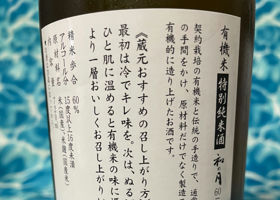 有機米 特別純米酒 一和月 60
契約栽培の有機米と伝統の手造りで、通常
の手間をかけ、原材料だけでなく製造
有機的に造り上げたお酒です。
《蔵元おすすめの召し上がり方
最初は冷でキレ味を。次は、ぬる
ひと肌に温めると有機米の味に
より一層おいしくお召し上がり
精米歩合 60%
アルコール分 15度以上16度未満
原材料名 米(国産)・米麹(国産米)
内容量